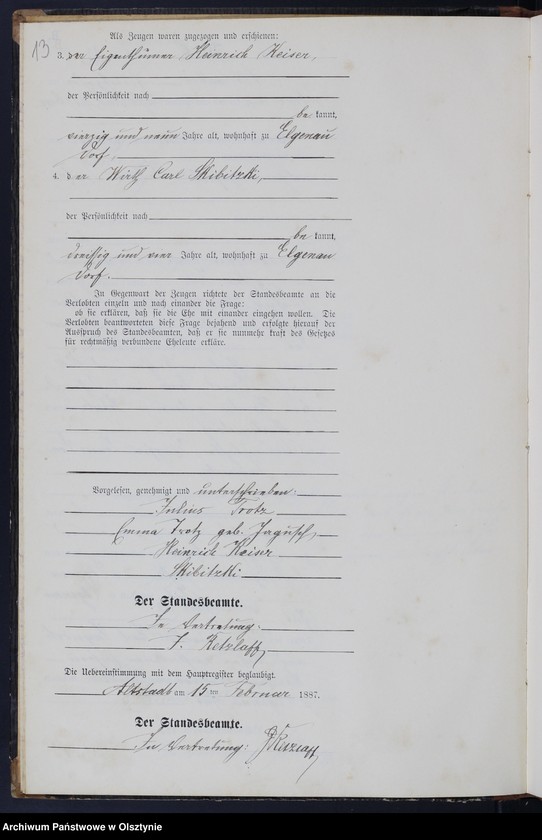 13
Als Zeugen waren zugezogen und erschienen:
3. der Eigenthümer Heinrich Keiser,
der Persönlichkeit nach
be kannt,
vierzig und neun Jahre alt, wohnhaft zu Elgenau
Dorf,
4. der Wirth Carl Skibitzki,
der Persönlichkeit nach
be kannt,
dreissig und vier Jahre alt, wohnhaft zu Elgenau
Dorf.
In Gegenwart der Zeugen richtete der Standesbeamte an die
Verlobten einzeln und nach einander die Frage:
ob sie erklären, daß sie die Ehe mit einander eingehen wollen. Die
Verlobten beantworteten diese Frage bejahend und erfolgte hierauf der
Ausspruch des Standesbeamten, daß er sie nunmehr kraft des Gesetzes
für rechtmäßig verbundene Eheleute erkläre.
Vorgelesen, genehmigt und unterschrieben:
Julius Trotz
Emma Trotz geb. Jagusch,
Heinrich Keiser
Skibitzki
Der Standesbeamte.
In Vertretung:
J. Retzlaff,
Die Uebereinstimmung mit dem Hauptregister beglaubigt.
Altstadt am 15 ten Februar 1887.
Der Standesbeamte.
In Vertretung: J Retzlaff
Archiwum Państwowe w Olsztynie